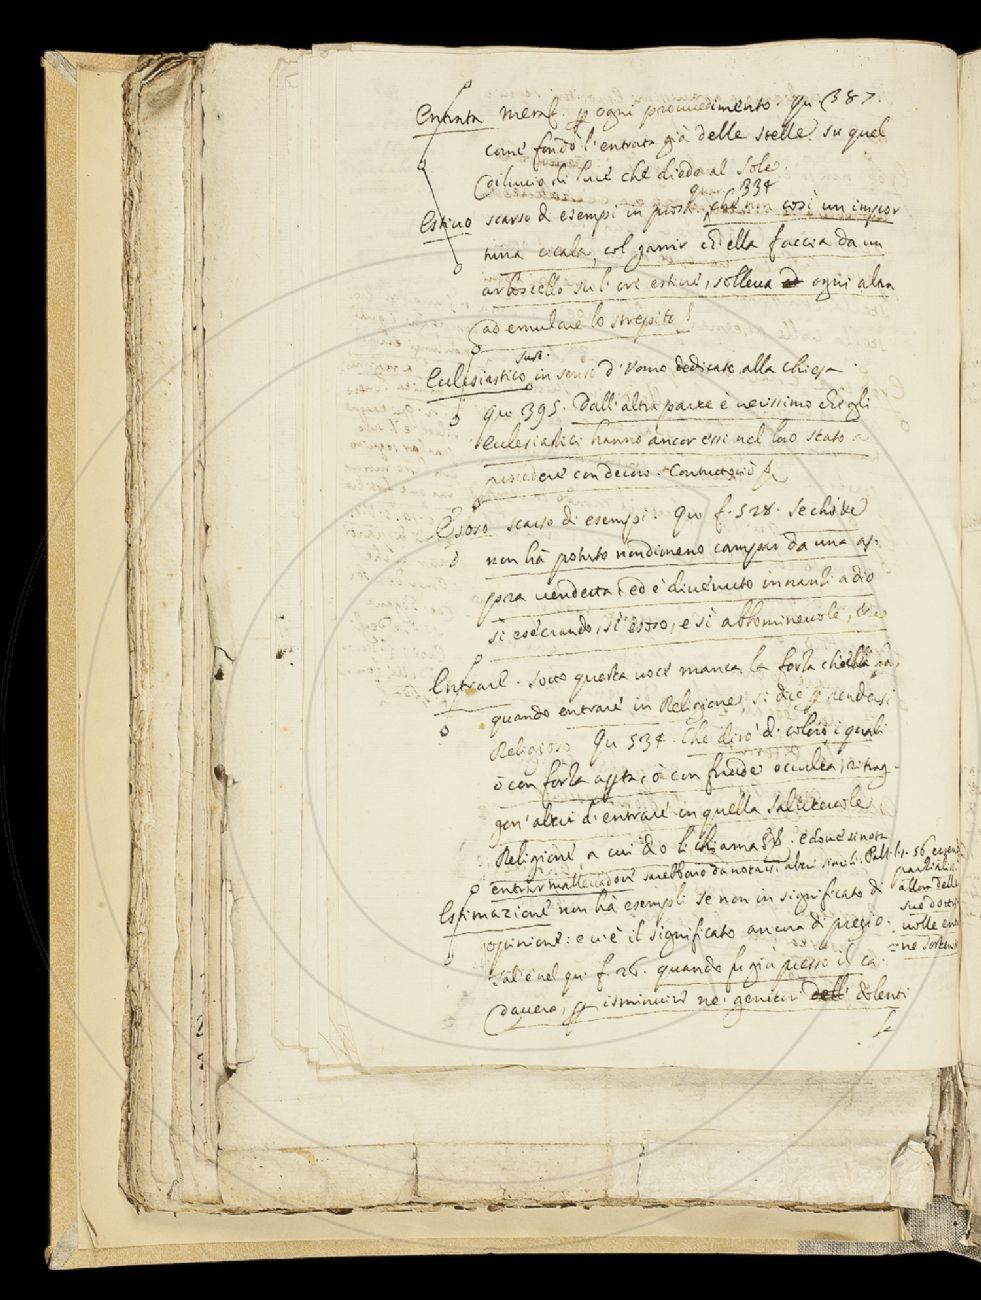 Entrata metaf. ꝑ ogni prouuedimento. qu (387.
come fondò l'entrata già delle stelle su quel
diluuio di luce che diede al Sole.
Estiuo scarso di esempi in prosa qu. 334 che non così un impor
tuna cicala, col garrir ch'ella faccia da un
arboscello su l'ore estiue, solleua ogni altra
ad emulare lo strepito
Ecclesiastico sust. in senso d'Vomo dedicato alla chiesa.
Qu 395. Dall'altra parte è uerissimo che gli
ecclesiastici hanno ancor essi nel loro stato a
procedere con decoro.
Esoso scarso di esempi. Qu f. 528. Se chi
non hà potuto nondimeno campar da una as-
pra uendetta, ed è diuenuto innanzi a dio
sì esecrando, sì esoso, e sì abbomineuole,
Entrare. Sotto questa uoce manca la forza ch'ella hà,
quando entrare in Religione, si dice ꝑ rendersi
Religioso Qu 534. Che dirò di coloro i quali
ò con forza aꝑta, ò con frode occulta, ritrag-
gon' altri d'entrare in quella Salutevole
Religione a cui dio li chiama. e doue si nota
entrar malleuadore sarebbono da notarsi altri simili.
Estimazione non hà esempli se non in significato di
opinione: e ui è il significato ancora di pregio.
tal'è nel qu. f. 26. quando fu già presso il ca-
dauero, ꝑ isminuire ne' genitori dolenti
f. 56
allora delle
sue dottri
uolle